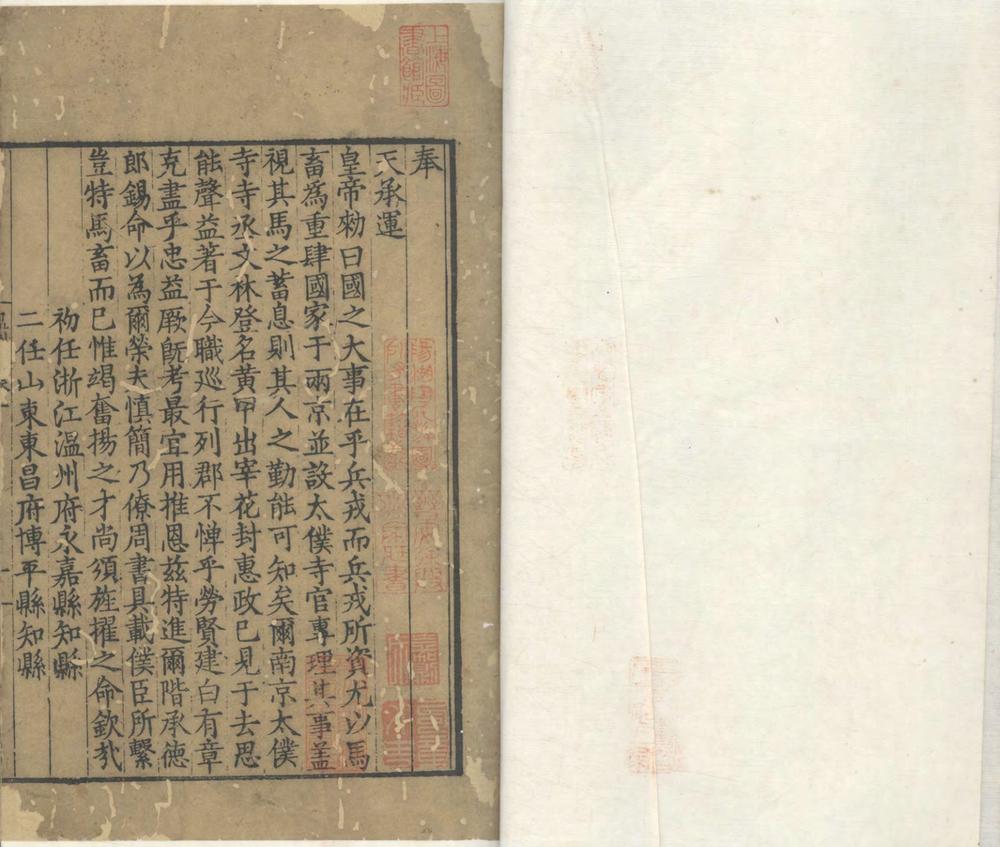 奉
天承運
皇帝勑曰國之大事在乎兵戎而兵戎所資尤以馬
畜為重肆國家于兩京並設太僕寺官專理其事盖
視其馬之蓄息則其人之勤能可知矣爾南京太僕
寺寺丞文林登名黃甲出宰花封惠政已見于去思
能聲益著于今職巡行列郡不憚乎勞賢建白有章
克盡乎忠益厥既考最宜用推恩茲特進爾階承德
郎錫命以為爾榮夫慎簡乃僚周書具載僕臣所繫
豈特馬畜而已惟竭奮揚之才尚須旌擢之命欽㢤
初任浙江溫州府永嘉縣知縣
二任山東東昌府博平縣知縣
上海圖書館藏